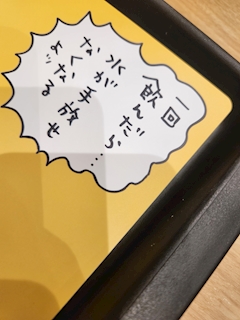 一回
飲んだら…
水が手放せ
なくなる